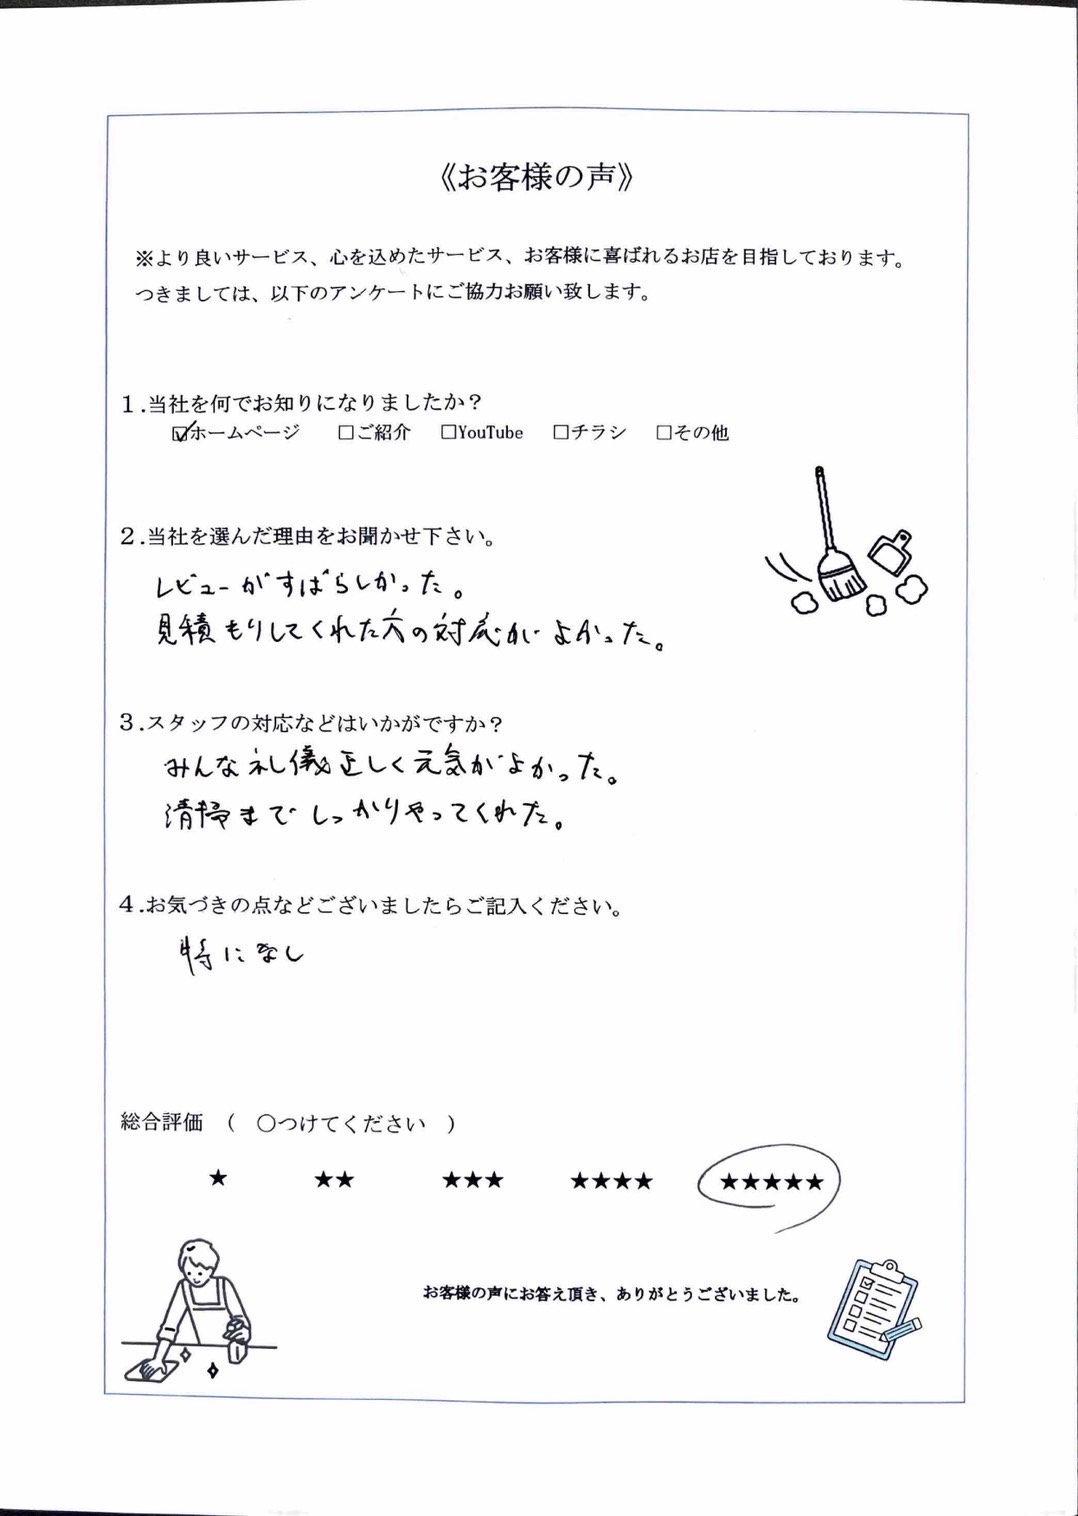 《お客様の声》
※より良いサービス、心を込めたサービス、お客様に喜ばれるお店を目指しております。
つきましては、以下のアンケートにご協力お願い致します。
1.当社を何でお知りになりましたか？
☑ホームページ　□ご紹介　□YouTube　□チラシ　□その他
2.当社を選んだ理由をお聞かせ下さい。
レビューがすばらしかった。
見積もりしてくれた方の対応がよかった。
3.スタッフの対応などはいかがですか？
みんな礼儀正しく元気がよかった。
清掃までしっかりやってくれた。
4.お気づきの点などございましたらご記入ください。
特になし
総合評価　（　○つけてください　）
★　★★　★★★　★★★★　★★★★★
お客様の声にお答え頂き、ありがとうございました。